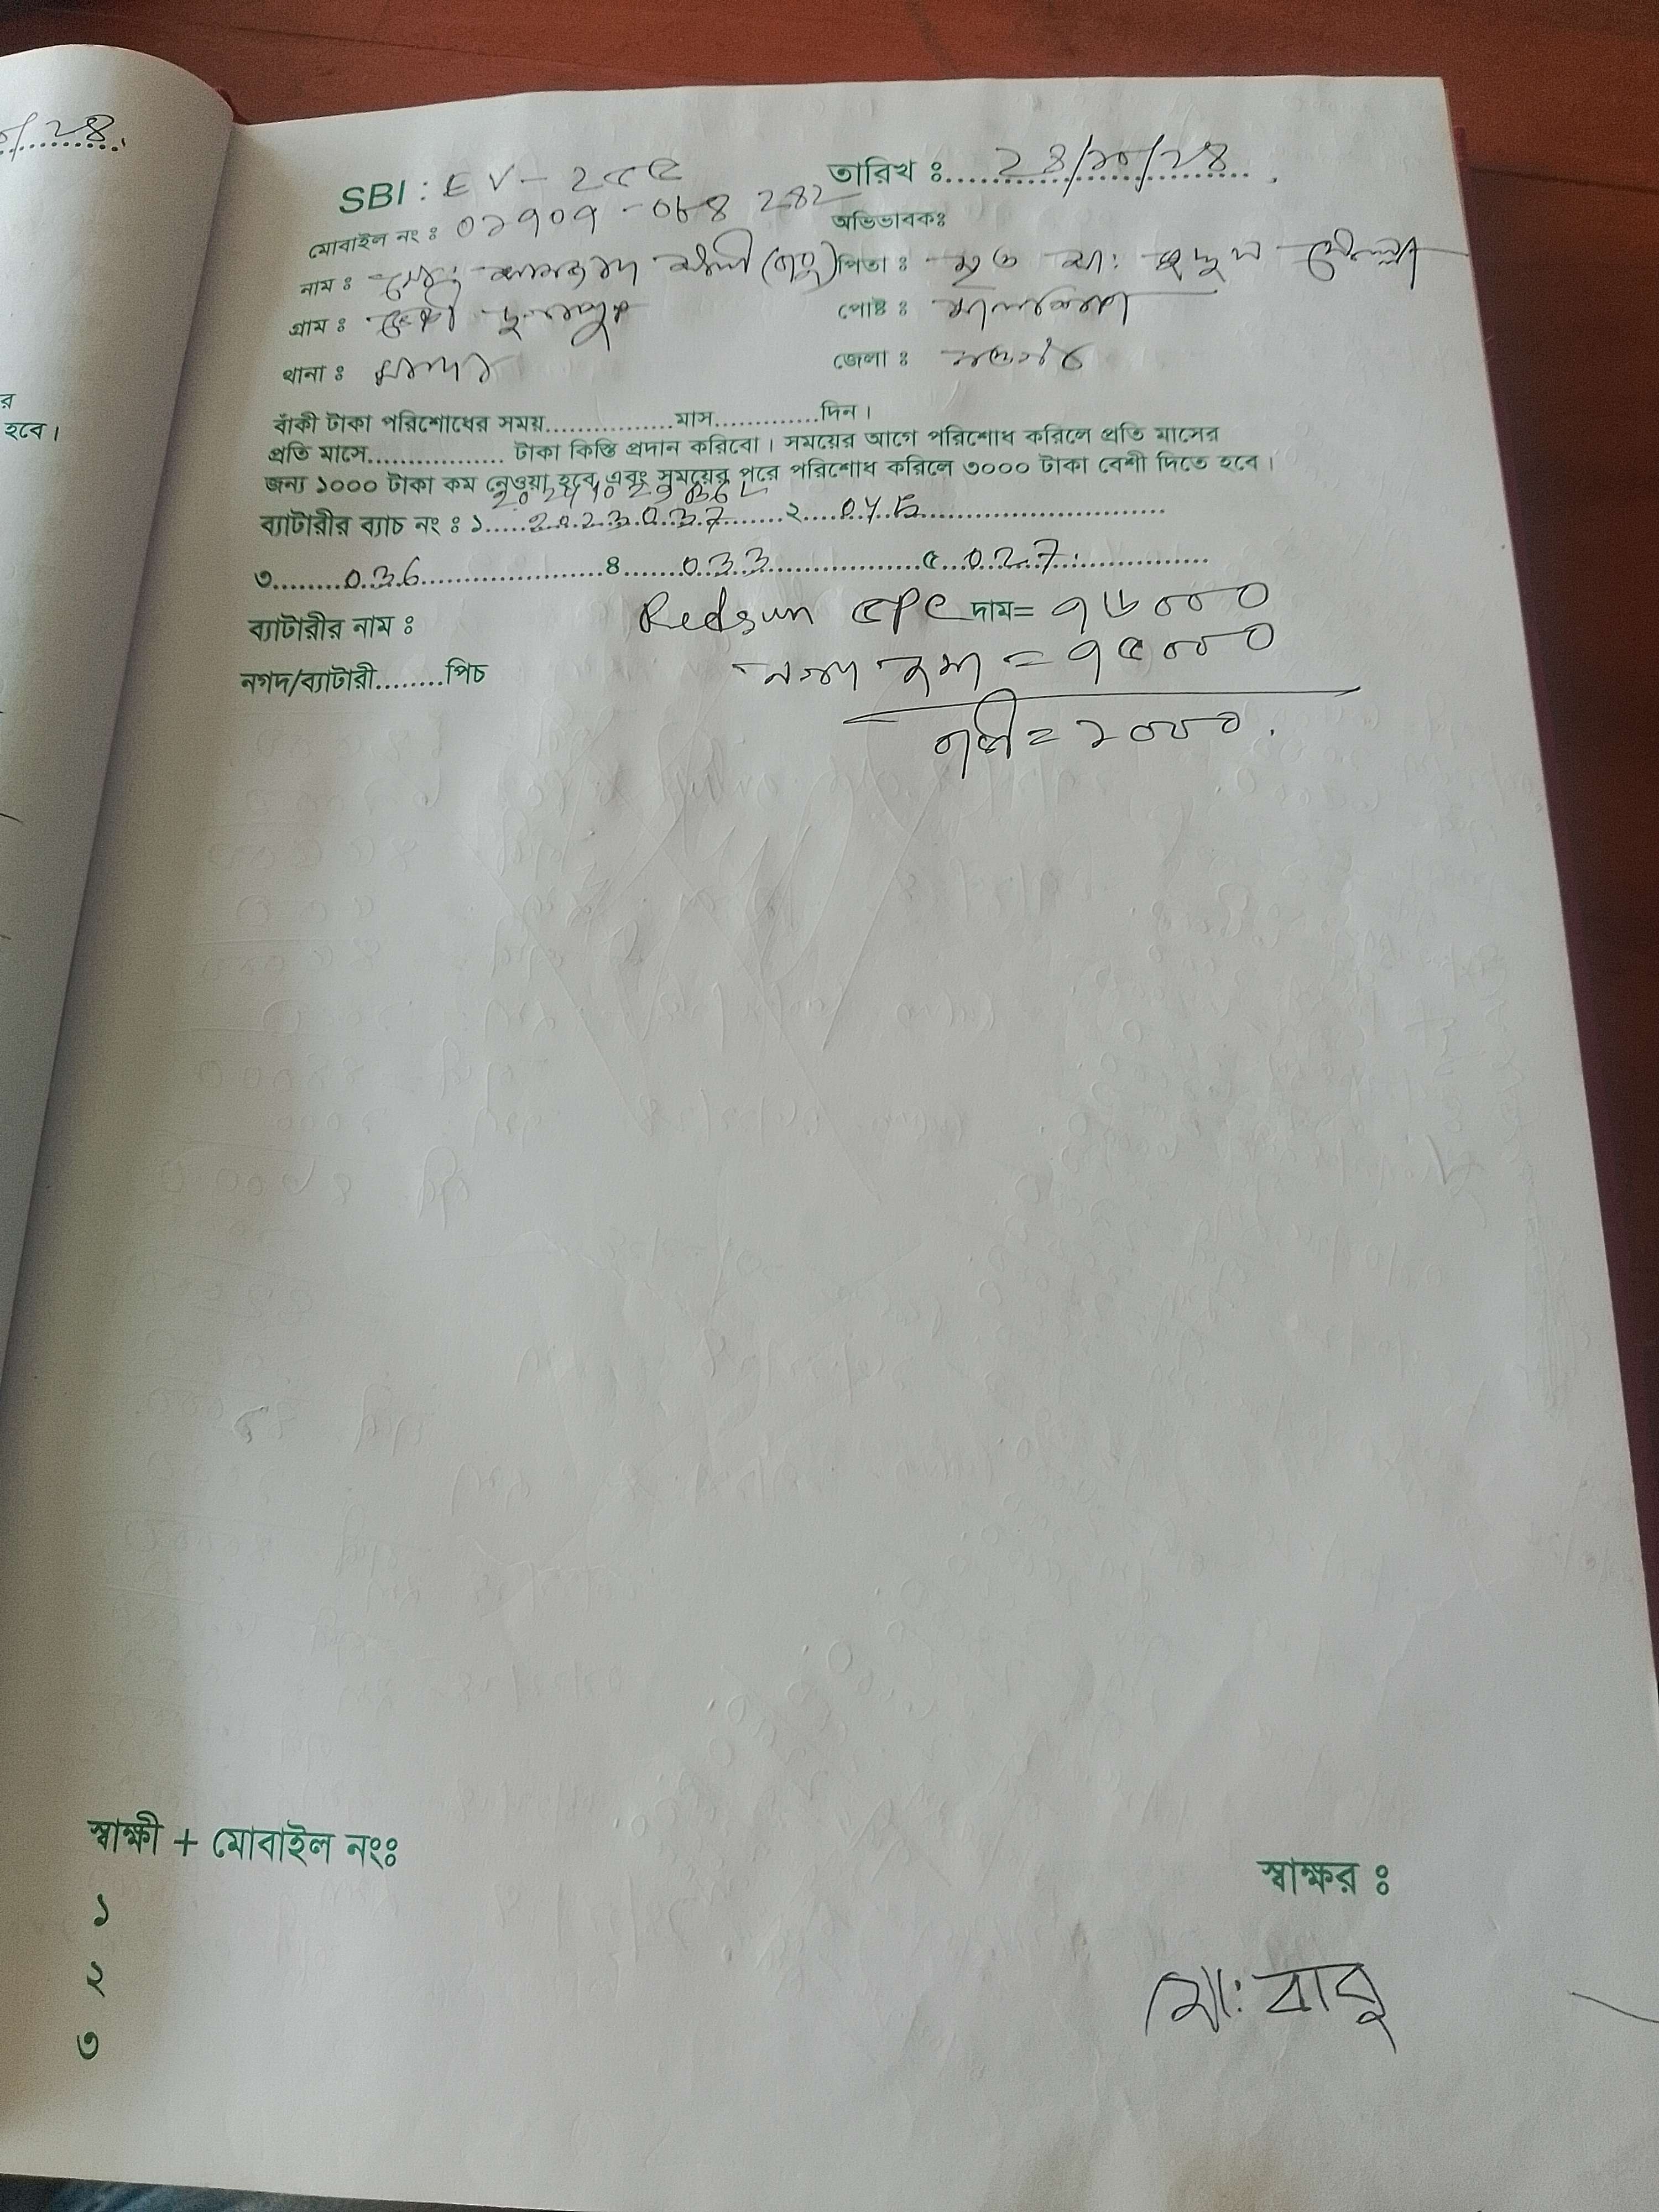 SBI : EV - 2৫৫ তারিখ ঃ 28/১০/২৪
মোবাইল নং ঃ ০১৭০৭ - ০৮৪ ২৪২ অভিভাবকঃ
নাম ঃ মোঃ আলী (বাবু) পিতা ঃ মৃত মোল্লা
গ্রাম ঃ পোষ্ট ঃ
থানা ঃ মান্দা জেলা ঃ নওগাঁ
বাঁকী টাকা পরিশোধের সময়................মাস.............দিন।
প্রতি মাসে................. টাকা কিস্তি প্রদান করিবো। সময়ের আগে পরিশোধ করিলে প্রতি মাসের
জন্য ১০০০ টাকা কম নেওয়া হবে এবং সময়ের পরে পরিশোধ করিলে ৩০০০ টাকা বেশী দিতে হবে।
ব্যাটারীর ব্যাচ নং ঃ ১ 2023037 ২
৩ 036 ৪ 033 ৫ 027
ব্যাটারীর নাম ঃ Redsun দাম= ৭৬০০০
নগদ/ব্যাটারী........পিচ নগদ জমা = ৭৫০০০
বাকী = ১০০০
স্বাক্ষী + মোবাইল নংঃ
স্বাক্ষর ঃ
১
২
৩
মো: বাবু
র
হবে।